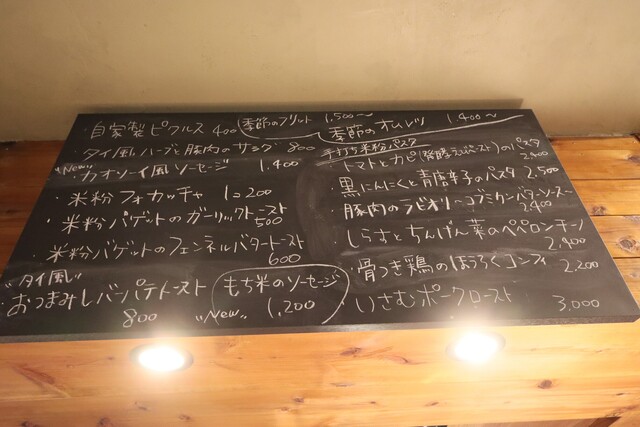 ・自家製ピクルス 400
季節のフリット 1,500〜
季節のオムレツ 1,400〜
・タイ風ハーブと豚肉のサラダ 800
"New" カオソーイ風ソーセージ 1,400
・米粉フォカッチャ 1コ200
・米粉バゲットのガーリックトースト 500
・米粉バゲットのフェンネルバタートースト 600
"タイ風"
おつまみレバーパテトースト 800
"New" もち米のソーセージ 1,200
手打ち米粉パスタ
・トマトとカピ(発酵えびペースト)のパスタ 2,400
・黒にんにくと青唐辛子のパスタ 2,500
・豚肉のラビオリ〜コブミカンバターソース〜 2,400
・しらすとちんげん菜のペペロンチーノ 2,400
・骨つき鶏のほうろくコンフィ 2,200
・いさむポークロースト 3,000